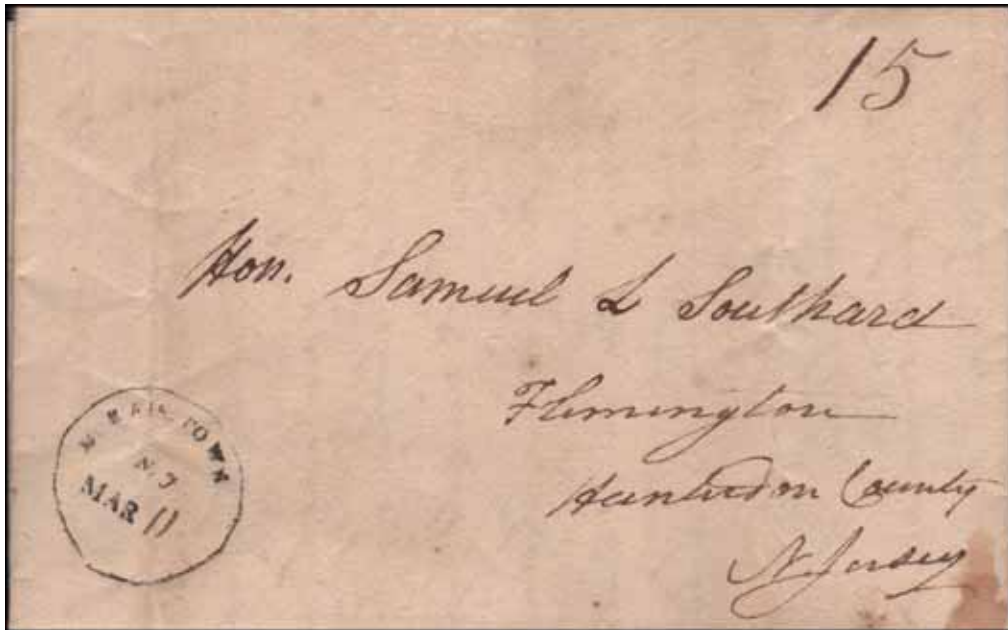 15
Hon. Samuel L Southard
Flemington
Hunterdon County
N. Jersey
MORRISTOWN
N.J
MAR 11